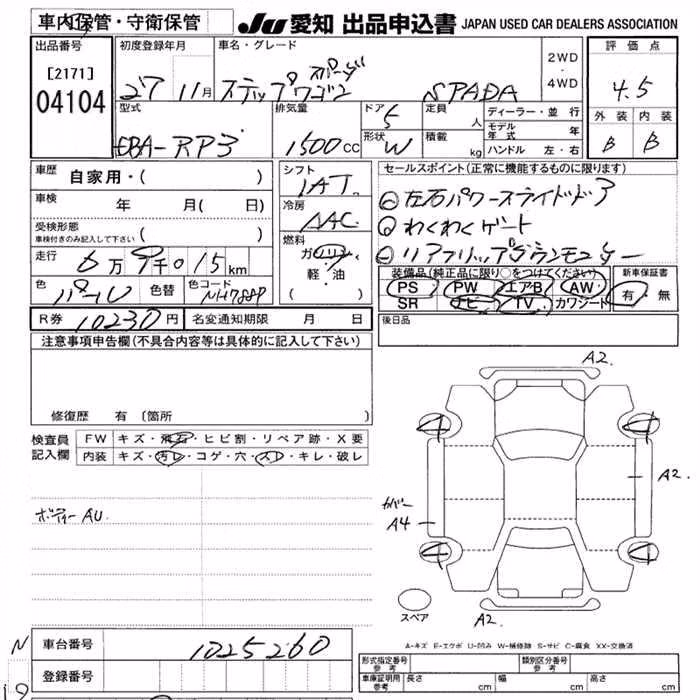 車内保管・守衛保管
JU 愛知 出品申込書 JAPAN USED CAR DEALERS ASSOCIATION
出品番号 初度登録年月 車名・グレード 2WD・4WD 評価点
[2171]
04104 27 11月 ステップワゴン スパーダ SPADA 4.5
型式 排気量 ドア 5 定員 人 ディーラー・並行 外装 内装
EBA-RP3 1500cc 形状 W 積載 kg モデル年式 年 B B
ハンドル 左・右
車歴 自家用・( ) シフト IAT セールスポイント(正常に機能するものに限ります)
車検 年 月( 日) 冷房 AAC ㊀左右パワースライドドア
受検形態 ㊀わくわくゲート
車検付きのみ記入して下さい ( ) 燃料 ガソリン ㊀リアフリップダウンモニター
走行 6万9千015km 軽・油
装備品(純正品に限り○をつけてください) 新車保証書
色 パール 色替 色コード NH788P ( ) PS PW エアB AW 有・無
SR ナビ TV カワシート
R券 10230円 名変通知期限 月 日 後日品
注意事項申告欄(不具合内容等は具体的に記入して下さい)
A2.
修復歴 有 (箇所 )
検査員 FW キズ・飛石・ヒビ割・リペア跡・X要
記入欄 内装 キズ・汚レ・コゲ・穴・スレ・キレ・破レ
4 4
A2.
カバー
A4
ボディーAU.
4 4
スペア
A2.
A-キズ E-エクボ U-凹み W-補修跡 S-サビ C-腐食 XX-交換済
N 車台番号 1025260
形式指定番号 参考 類別区分番号 参考
登録番号 車庫証明用 参考 長さ cm 幅 cm 高さ cm
19